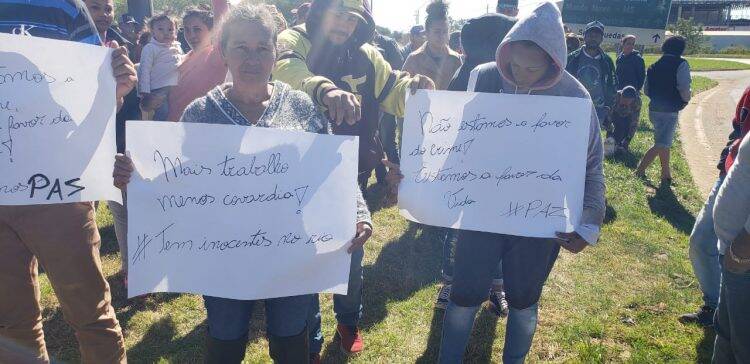 stamos a
a favor da
PAS
Mais trabalho
menos covardia!
# Tem inocentes no rio
Não estamos a favor
do crime!
Estamos a favor da
Vida #PAZ